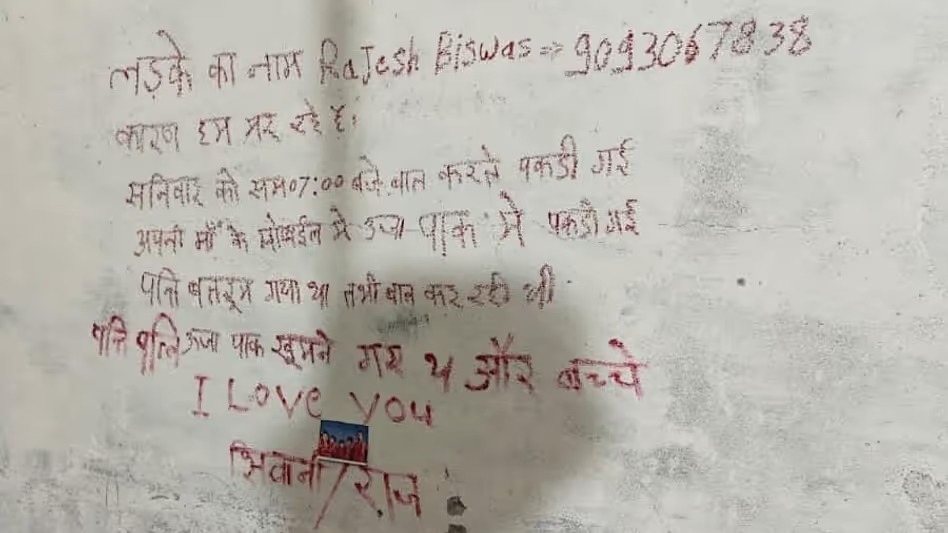 लड़के का नाम RaJesh Biswas => 9093067838
कारण हम मर रहे है।
सनिवार को सम 07:00 बजे बात करते पकडी गई
अपनी माँ के मोबाईल मे ऊर्जा पाक मे पकडी गई
पत्ति बतरूम गया था तभी बात कर रही थी
पत्ति पत्नि ऊर्जा पाक घूमने गए थे और बच्चे
I Love You
शिवानी / राज